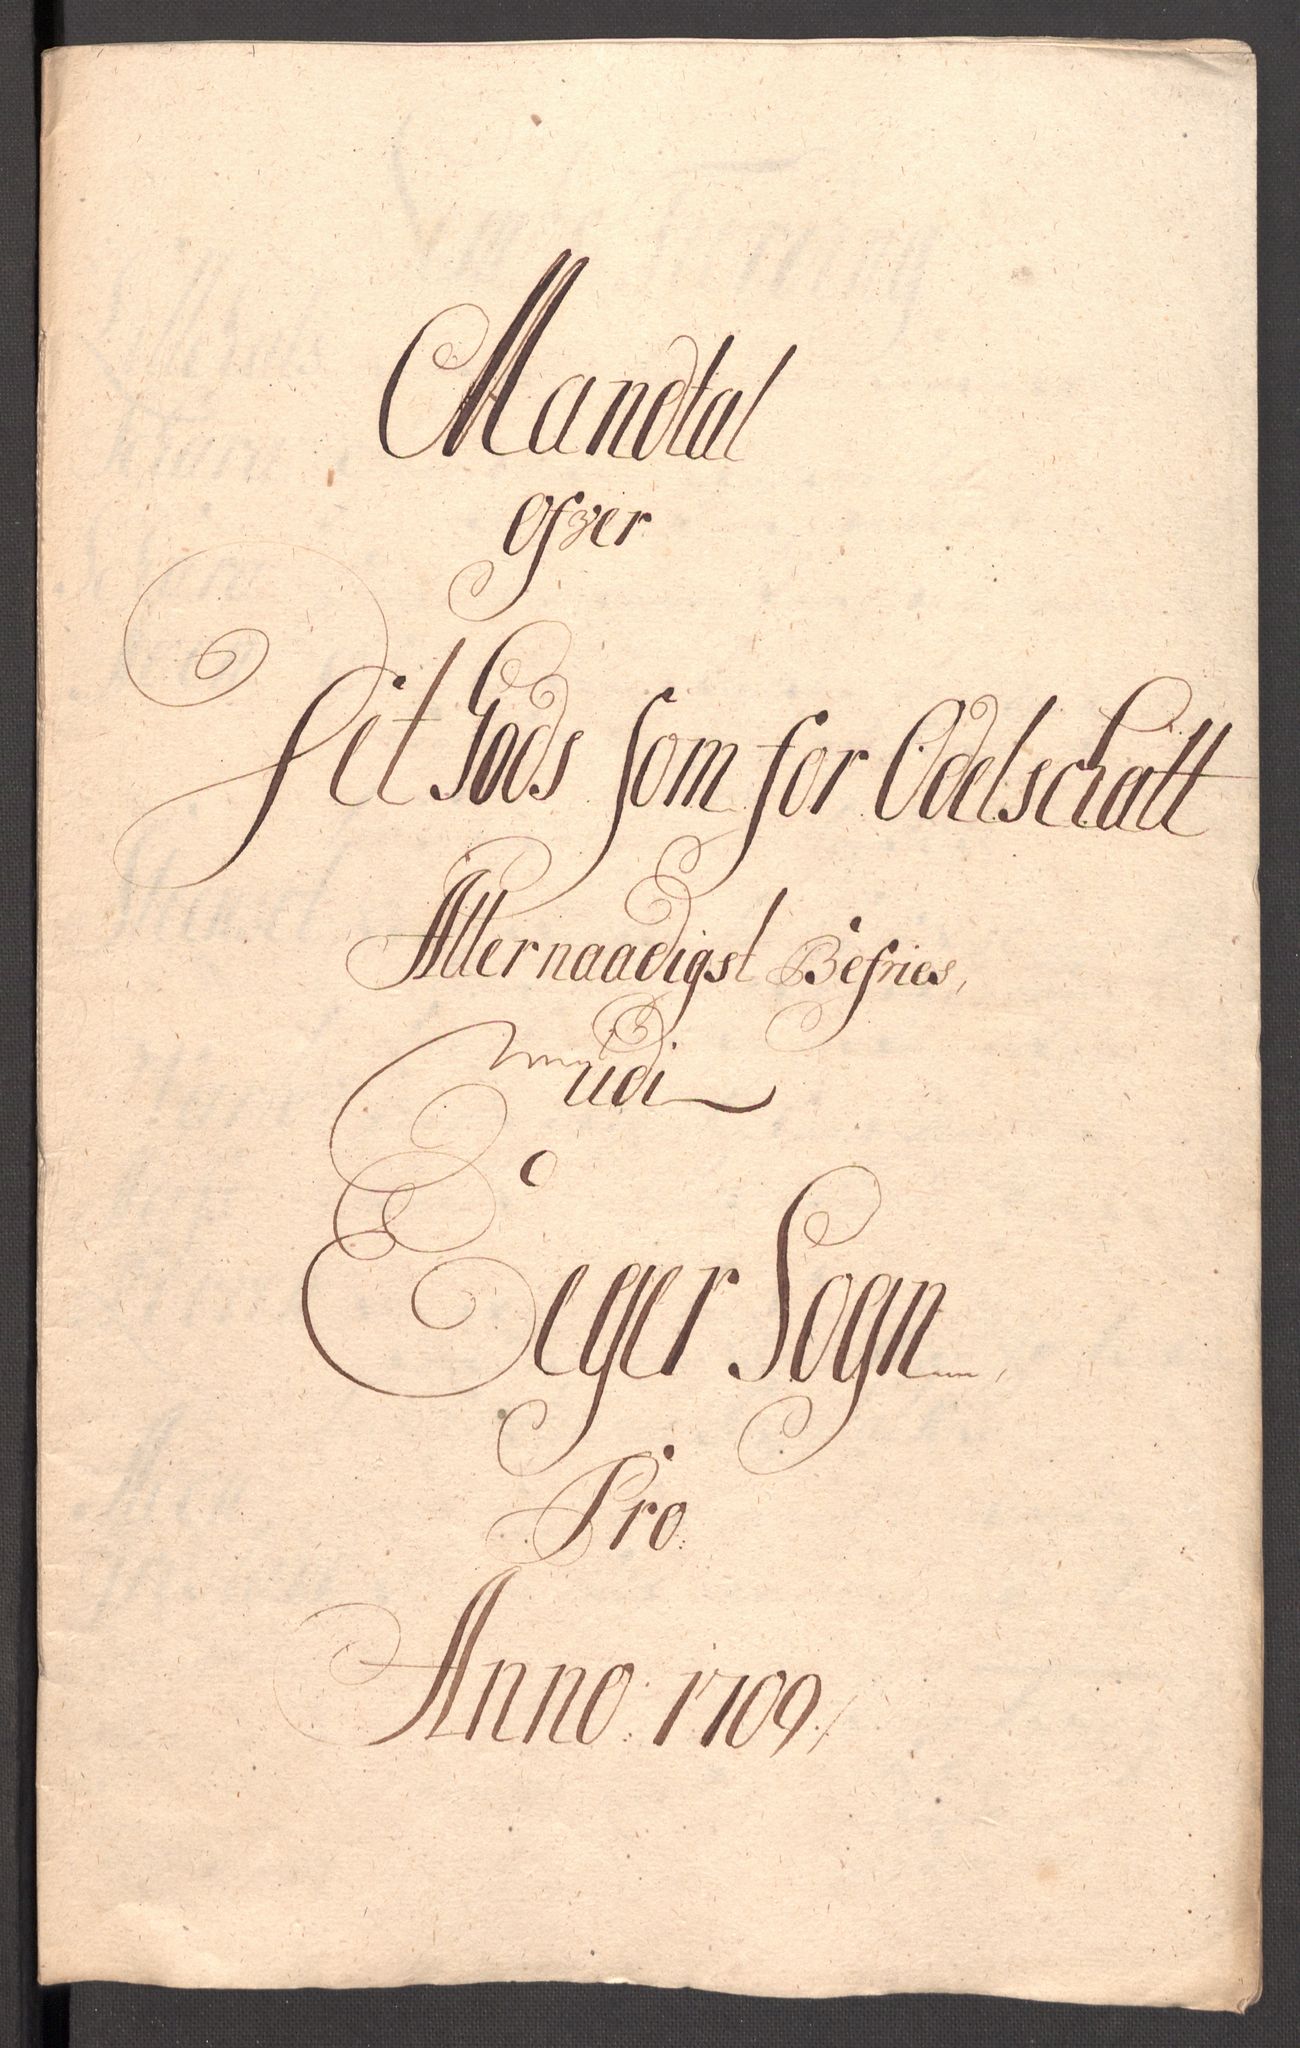 Mandtal
Ofver
Det Gods som for Odelschatt
Allernaadigst Befries,
udi
Eeger Sogn,
Pro:
Anno: 1709